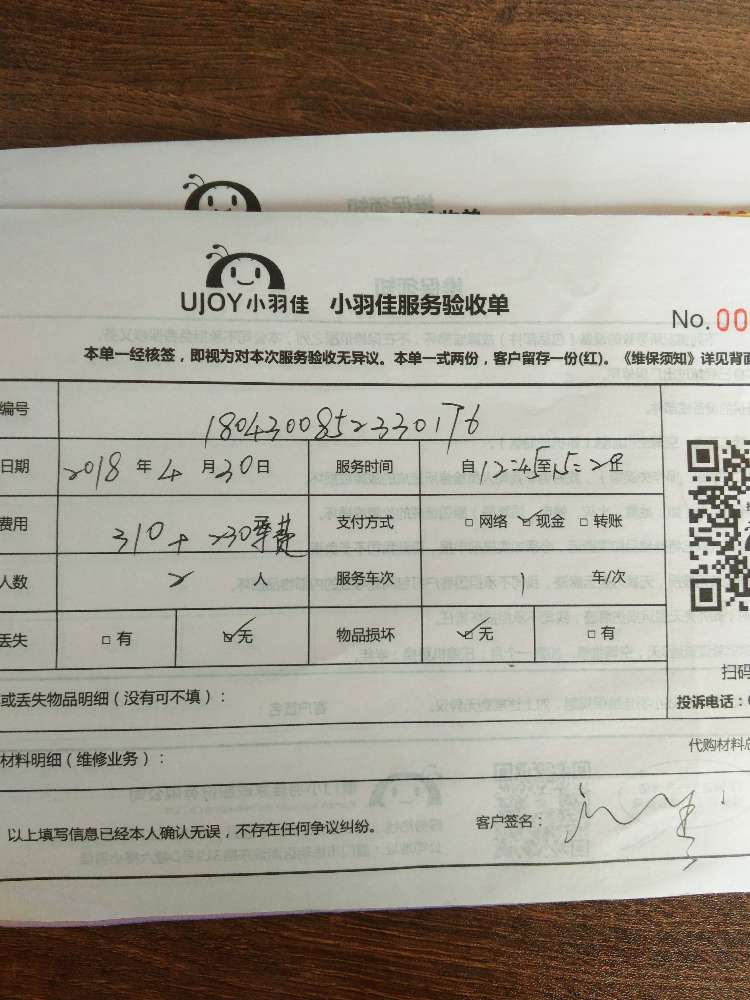 UJOY小羽佳 小羽佳服务验收单
No. 00
本单一经核签，即视为对本次服务验收无异议。本单一式两份，客户留存一份(红)。《维保须知》详见背面
编号 1804300852330176
日期 2018 年 4 月 30 日 服务时间 自 12:45 至 15:28
费用 310 + 230 支付方式 □ 网络 ☑ 现金 □ 转账
人数 2 人 服务车次 1 车/次
丢失 □ 有 ☑ 无 物品损坏 ☑ 无 □ 有
扫码
或丢失物品明细（没有可不填）： 投诉电话：
材料明细（维修业务）： 代购材料总
以上填写信息已经本人确认无误，不存在任何争议纠纷。 客户签名：